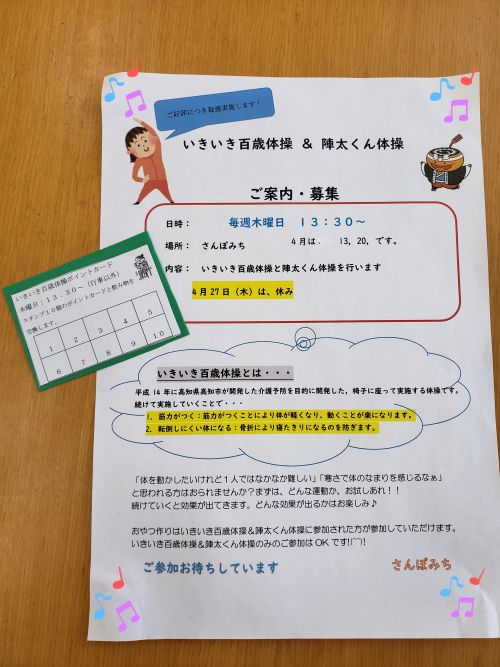 ご好評につき毎週実施します！
いきいき百歳体操 ＆ 陣太くん体操
ご案内・募集
日時： 毎週木曜日 １３：３０～
場所： さんぽみち ４月は 13，20，です。
内容： いきいき百歳体操と陣太くん体操を行います
４月２７日（木）は、休み
いきいき百歳体操ポイントカード
木曜日：１３：３０～（行事以外）
スタンプ１０個のポイントカードと飲み物を
交換します。
1 2 3 4 5
6 7 8 9 10
いきいき百歳体操とは・・・
平成 14 年に高知県高知市が開発した介護予防を目的に開発した、椅子に座って実施する体操です。
続けて実施していくことで・・・
1．筋力がつく：筋力がつくことにより体が軽くなり、動くことが楽になります。
2．転倒しにくい体になる：骨折により寝たきりになるのを防ぎます。
「体を動かしたいけれど１人ではなかなか難しい」「寒さで体のなまりを感じるなぁ」
と思われる方はおられませんか？まずは、どんな運動か、お試しあれ！！
続けていくと効果が出てきます。どんな効果が出るかはお楽しみ♪
おやつ作りはいきいき百歳体操＆陣太くん体操に参加された方が参加していただけます。
いきいき百歳体操＆陣太くん体操のみのご参加は OK です!(^^)!
ご参加お待ちしています さんぽみち